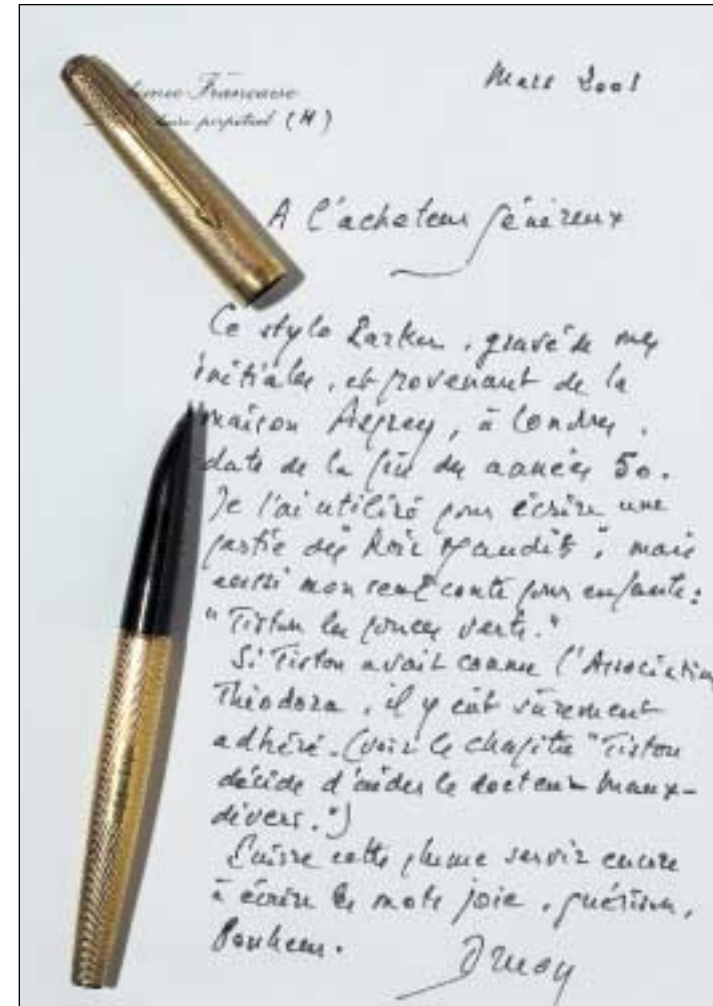 Française
perpétuel (H)
Mars 2001
A l'acheteur généreux
Ce stylo Parker, gravé de mes
initiales, et provenant de la
maison Asprey, à Londres,
date de la fin des années 50.
Je l'ai utilisé pour écrire une
partie des Rois Maudits, mais
aussi mon seul conte pour enfants :
"Tistou les pouces verts."
Si Tistou avait connu l'Association
Théodora, il y eût sûrement
adhéré. (voir le chapitre "Tistou
décide d'aider le docteur Maux-
divers.")
Puisse cette plume servir encore
à écrire les mots joie, guérison,
bonheur.
Druon